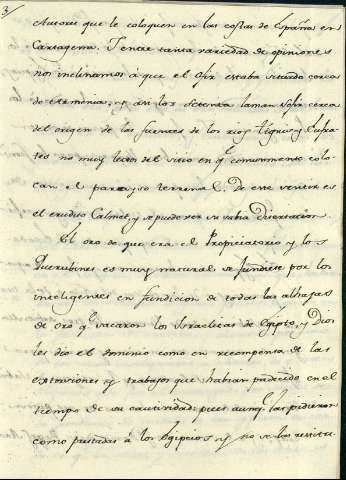 3/
Autores que le coloquen en las costas de España en
Cartagena. Tentre tanta variedad de opiniones
nos inclinamos à que el Ofir estaba situado cerca
de Armenia, y asi los Setenta llaman Sofir cerca
del origen de las fuentes de los rios Tigris y Eufra-
tes no muy lexos del sitio en qe comunmente colo-
can el parayso terrenal. De este sentir es
el erudito Calmet, y se puede ver su sabia Disertacion.
El oro de que era el Propiciatorio y los
Querubines es muy natural se fundiese por los
inteligentes en fundicion de todas las alhajas
de oro qe sacaron los Israelitas de Egipto, y Dios
les dio el dominio como en recompensa de las
extorsiones y trabajos que habian padecido en el
tiempo de su cautividad; pues aunqe las pidieron
como prestadas à los Egipcios y no se las restitu-